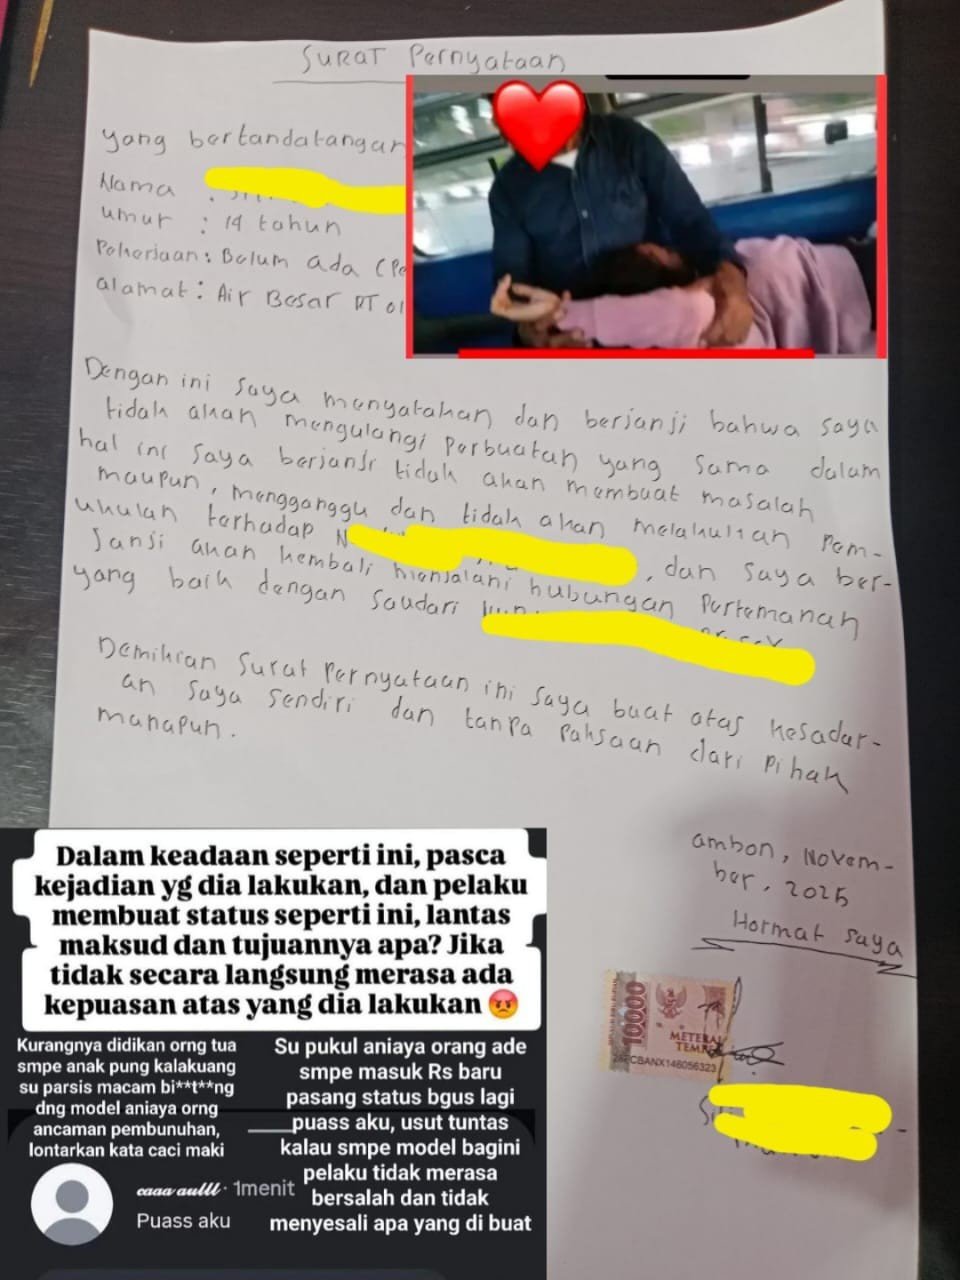 Surat Pernyataan
yang bertandatangan
Nama :
umur : 19 tahun
Pekerjaan : Belum ada (Pe
alamat : Air Besar RT 01
Dengan ini saya menyatakan dan berjanji bahwa saya
tidak akan mengulangi Perbuatan yang sama dalam
hal ini saya berjanji tidak akan membuat masalah
maupun, mengganggu dan tidak akan melakukan Pem-
ukulan terhadap N , dan saya ber-
Janji akan kembali menjalani hubungan Pertemanan
yang baik dengan saudari
Demikian Surat Pernyataan ini saya buat atas kesadar-
an saya sendiri dan tanpa Paksaan dari Pihak
manapun.
ambon, Novem-
ber, 2025
Hormat saya
10000
METERAI
TEMPEL
CBANX146056323
Dalam keadaan seperti ini, pasca
kejadian yg dia lakukan, dan pelaku
membuat status seperti ini, lantas
maksud dan tujuannya apa? Jika
tidak secara langsung merasa ada
kepuasan atas yang dia lakukan 😡
Kurangnya didikan orng tua
smpe anak pung kalakuang
su parsis macam bi**t**ng
dng model aniaya orng
ancaman pembunuhan,
lontarkan kata caci maki
Su pukul aniaya orang ade
smpe masuk Rs baru
pasang status bgus lagi
puass aku, usut tuntas
kalau smpe model bagini
pelaku tidak merasa
bersalah dan tidak
menyesali apa yang di buat
caaa aulll · 1menit
Puass aku